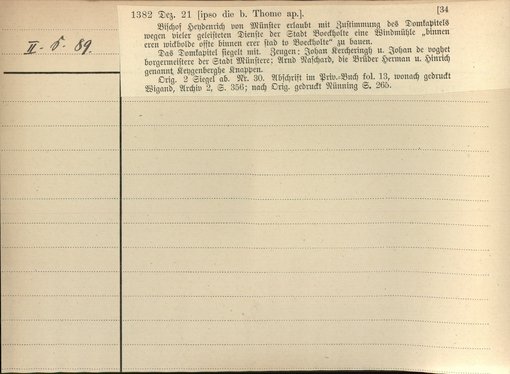 II. 5. 89.
1382 Dez. 21 [ipso die b. Thome ap.]. [34
Bischof Heydenrich von Münster erlaubt mit Zustimmung des Domkapitels
wegen vieler geleisteten Dienste der Stadt Boeckholte eine Windmühle „binnen
eren wickbolde offte binnen erer stad to Boeckholte“ zu bauen.
Das Domkapitel siegelt mit. Zeugen: Johan Kerckeringh u. Johan de voghet
borgermeistere der Stadt Münstere; Arnd Raschard, die Brüder Herman u. Hinrich
genannt Keygenberghe Knappen.
Orig. 2 Siegel ab. Nr. 30. Abschrift im Priv.-Buch fol. 13, wonach gedruckt
Wigand, Archiv 2, S. 356; nach Orig. gedruckt Nünning S. 265.